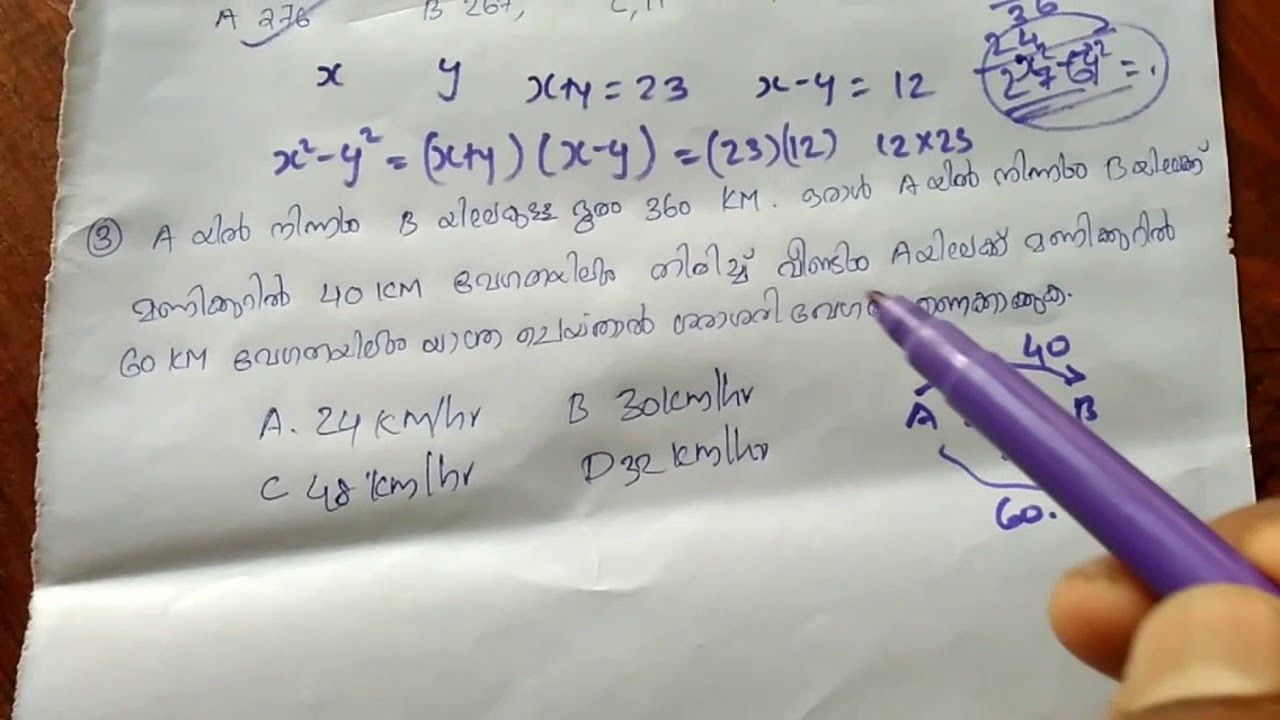 A 276 B 267,
36
24
x y x+y = 23 x-y = 12
x²-y² = (x+y) (x-y) = (23)(12) 12×23
③ A യിൽ നിന്നും B യിലേക്കുള്ള ദൂരം 360 KM. ഒരാൾ A യിൽ നിന്നും B യിലേക്ക്
മണിക്കൂറിൽ 40 KM വേഗതയിലും തിരിച്ച് വീണ്ടും A യിലേക്ക് മണിക്കൂറിൽ
60 KM വേഗതയിലും യാത്ര ചെയ്താൽ ശരാശരി
A. 24 KM/hr B 30 km/hr
C 48 km/hr D 32 km/hr
40
A B
60.